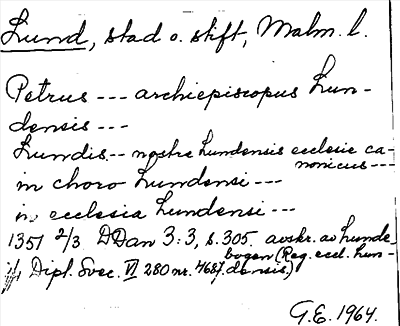 Lund, stad o. stift, Malm. l.
Petrus --- archiepiscopus Lun-
densis ---
Lundis -- nostre Lundensis ecclesie ca-
nonicus ---
in choro Lundensi ---
in ecclesia Lundensi ---
1351 2/3 DDan 3:3, s. 305. avskr. av Lunde-
bogen (Reg. eccl. Lun-
jfr Dipl. Svec. VI 280 nr. 4687. densis)
G.E. 1964.